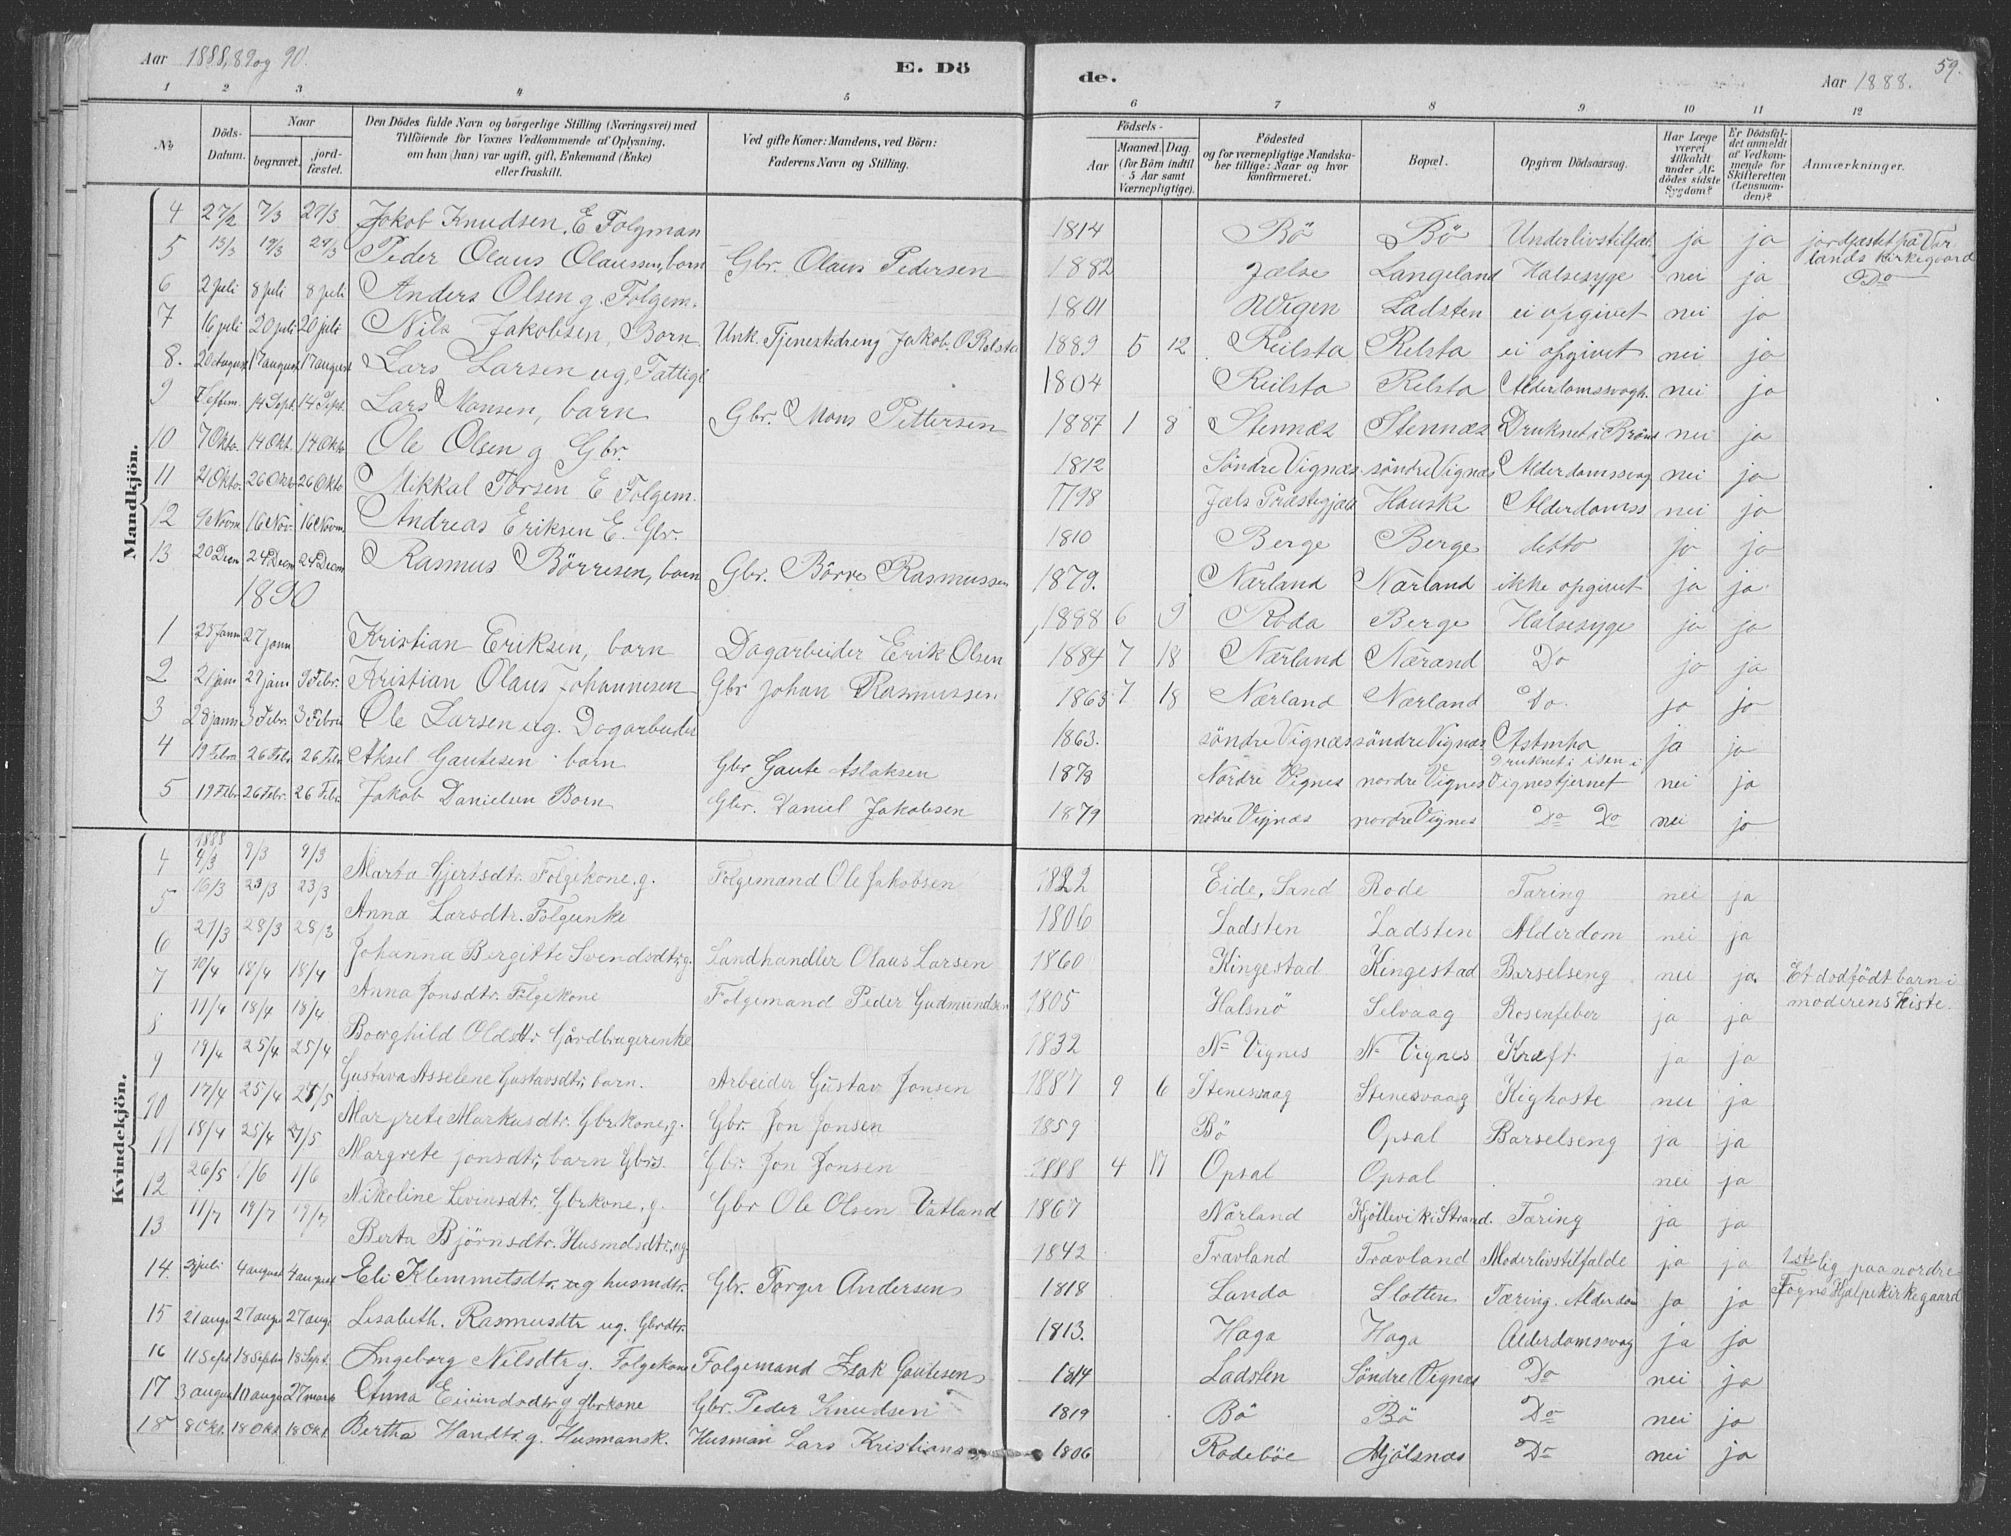 Aar 1888, 89 og 90.
E. Dö
de.
Aar 1888.
59.
1 2 3 4 5 6 7 8 9 10 11 12
No
Döds-Datum.
Naar
begravet.
jord-fæstet.
Den Dödes fulde Navn og borgerlige Stilling (Næringsvei) med
Tilföiende for Voxnes Vedkommende af Oplysning.
om han (hun) var ugift, gift, Enkemand (Enke)
eller fraskilt.
Ved gifte Koner: Mandens, ved Börn:
Faderens Navn og Stilling.
Födsels-
Aar
Maaned. Dag
(for Börn indtil
5 Aar samt
Værnepligtige).
Födested
og for værnepligtige Mandska-
ber tillige: Naar og hvor
konfirmeret.
Bopæl.
Opgiven Dödsaarsag.
Har Læge
været
tilkaldt
under Af-
dödes sidste
Sygdom?
Er Dödsfal-
det anmeldt
af Vedkom-
mende for
Skifteretten
(Lensman-
den)?
Anmærkninger.
Mandkjön.
4 27/2 7/3 27/3 Jakob Knudsen, E Folgman 1814 Bö Bö Underlivstilfæl. ja ja jordfæstet på Var
lands Kirkegaard
5 13/3 19/3 27/3 Peder Olaus Olaussen, barn Gbr. Olaus Pedersen 1882 Jælse Langeland Halsesyge nei ja Do
6 2 Juli 8 juli 8 juli Anders Olsen g. Folgem. 1801 Vigen Ladsten ei opgivet nei ja
7 16 juli 20 juli 20 juli Nils Jakobsen, Barn Unk. Tjenestedreng Jakob O Relsta 1889 5 12 Reilsta Relsta ei opgivet nei ja
8. 17 august 17 august Lars Larsen ug, Fattigl 1804 Reilsta Relsta Alderdomssvagh. nei ja
9 14 Sept. 14 Sept. Lars Monsen, barn Gbr. Mons Pettersen 1887 1 8 Stennæs Stennæs Druknet i Brönd nei ja
10 7 Okto. 14 Okt. 14 Okto Ole Olsen g Gbr. 1812 Söndre Vignæs söndre Vignæs Alderdomssvag nei ja
11 21 Okto. 26 Okto 26 Okto Mikkal Torsen E Folgem. 1798 Jæls Præstegjæld Hauske Alderdomss nei ja
12 9 Novm 16 Nov. 16 Novm Andreas Eriksen E. Gbr. 1810 Berge Berge detto ja ja
13 20 Decm 24 Decm 24 Decm Rasmus Börresen, barn Gbr. Börre Rasmussen 1879. Nærland Nærland ikke opgivet ja ja
1890
1 23 Janu 27 janu Kristian Eriksen, barn Dagarbeider Erik Olsen 1888 6 9 Roda Berge Halsesyge ja ja
2 21 jan 27 jan 3 Febr. Kristian Olaus Johannesen Gbr Johan Rasmussen 1884 7 18 Nærland Nærand Do ja ja
3 28 janu 3 Febr. 3 Febru Ole Larsen ug. Dagarbeider 1865 7 18 Nærland Nærland Do. ja ja
4 19 Febru 26 Febr 26 Febr Aksel Gautesen barn Gbr Gaute Aslaksen 1863. söndre Vignæs söndre Vignæs Astmha ja ja
5 19 Febr 26 Febr. 26 Febr Jakob Danielsen Barn Gbr. Daniel Jakobsen 1878 Nordre Vignes nordre Vignes Druknet i isen i
Vignestjernet nei ja
1879 nödre Vignæs nordre Vignes Do Do nei ja
Kvindekjön.
1888
4 9/3 9/3 9/3 Marta Gjertsdtr. Folgekone, g. Folgemand Ole Jakobsen 1822 Eide, Sand Rode Tæring nei ja
5 16/3 23/3 23/3 Anna Larsdtr. Folgeenke 1806 Ladsten Ladsten Alderdom nei ja
6 21/3 28/3 28/3 Johanna Bergitte Svendsdtr, g. Landhandler Olaus Larsen 1860 Kingestad Kingestad Barselseng nei ja. Et dodfödt barn i
moderens Kiste.
7 10/4 18/4 18/4 Anna Jonsdtr. Folgekone Folgemand Peder Gudmundsen 1805 Halsnö Selvaag Rosenfeber ja ja
8 11/4 18/4 18/4 Boerghild Oldsdtr Gårdbrugerenke 1832 N= Vignes N= Vignes Kræft ja ja
9 19/4 25/4 25/4 Gustava Asselene Gustavsdtr, barn. Arbeider Gustav Jonsen 1887 9 6 Stenesvaag Stenesvaag Kighoste nei ja
10 17/4 25/4 Margrete Markusdtr. Gbrkone, g. Gbr. Jon Jonsen 1859 Bö Opsal Barselseng ja ja
11 18/4 25/4 27/5 Margrete jonsdtr, barn Gbrs. Gbr. Jon Jonsen 1888 4 17 Opsal Opsal nei ja
12 26/5 1/6 1/6 Nikoline Levinsdtr. Gbrkone, g. Gbr Ole Olsen Vatland 1867 Nårland Kjöllevik i Strand. Tæring ja ja
13 11/7 19/7 19/7 Berta Björnsdtr. Husmdsdtr, ug 1842 Travland Travland Moderlivstilfælde ja ja 1ste lig paa nordre
Fogns Hjælpekirkegaard
14 31 juli 4 august 4 august Eli Klemmetsdtr. ug husmdtr. Gbr. Torger Andersen 1818 Landa Slotten Tæring. Alderdom ja ja
15 21 augu 27 augu 27 aug. Lisabeth. Rasmusdtr ug. Gbrdtr. 1813. Haga Haga Alderdomssvag ja ja
16 11 Sept. 18 Septbr 18 Sept. Ingeborg Nilsdtr g. Folgekone Folgemand Isak Gautesen 1814 Ladsten Söndre Vignæs Do nei ja
17 3 august 10 augu 27 mars Anna g gbrkone Gbr. Peder Knudsen 1819 Bö Bö Do nei ja
18 8 Okt. 18 Okt. 18 Okt Bertha g. Husmansk. Husman Lars Kristians 1806 Rodeböe Hjölsnæs Do nei ja